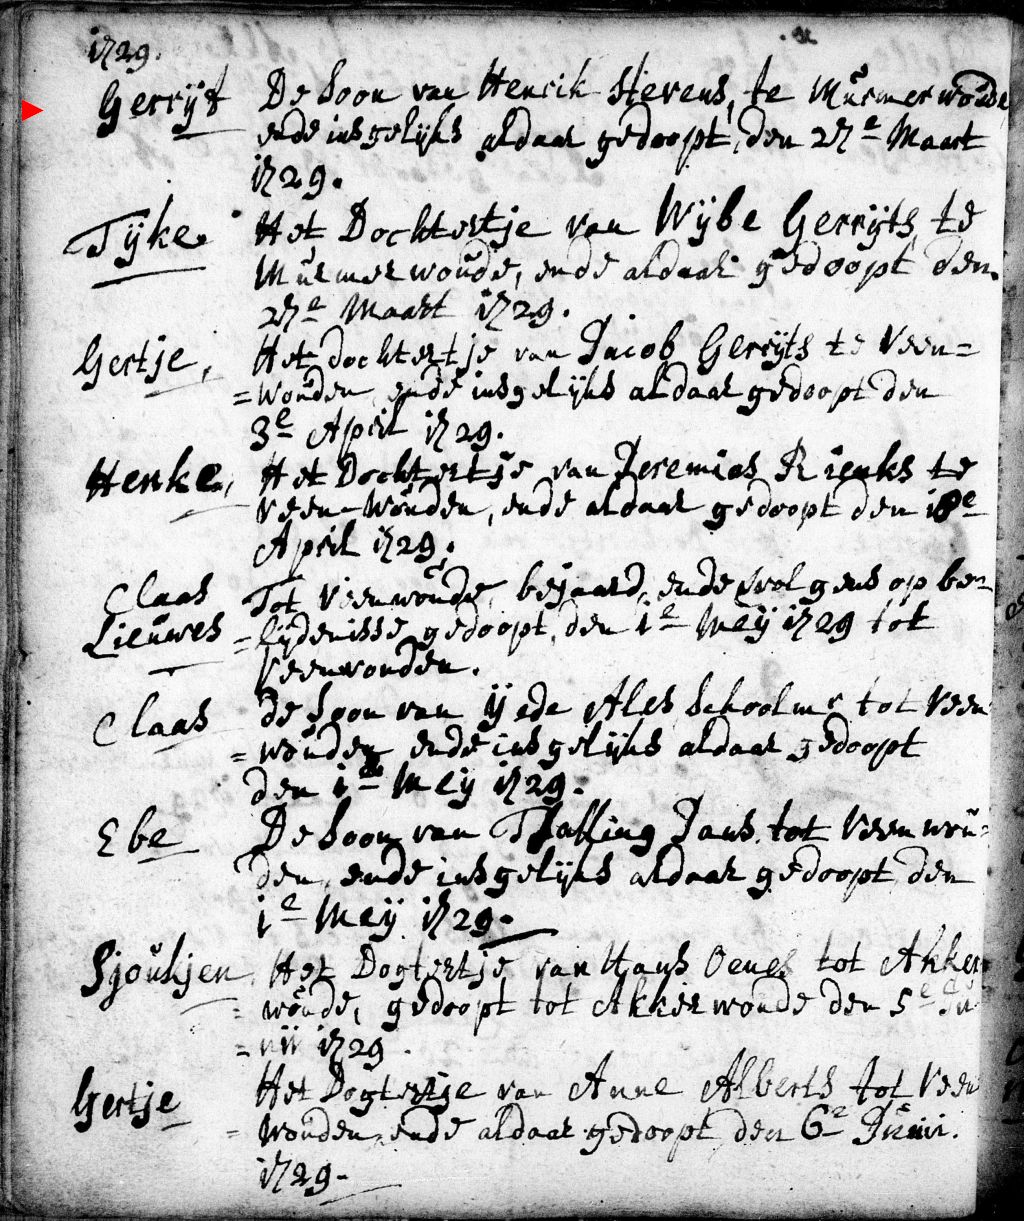 1729.
Gerrÿt De Soon van Henrik Stevens, te Mŭrmerwoŭde
ende insgelÿks aldaar gedoopt, den 27e Maart
1729.
Tÿke. Het Dochtertje van Wÿbe Gerrÿts te
Mŭrmerwoŭde, ende aldaar gedoopt den.
27e Maart 1729.
Gertje, Het dochtertje van Jacob Gerrÿts te Veen=
=woŭden, ende insgelÿks aldaar gedoopt den
3e April 1729.
Henke, Het Dochtertje van Jeremias Rienks te
Veen-woŭden, ende aldaar gedoopt den 10e
April 1729.
Claas Tot Veenwoŭde, bejaard, ende volgens op be=
Lieŭwes =lÿdenisse gedoopt, den 1e Meÿ 1729 tot
Veenwouden.
Claas de Soon van ÿede Ales Schoolmr tot Veen
=woŭden ende insgelÿks aldaar gedoopt
den 1e Meÿ 1729.
Ebe De Soon van Tjalling Jans. tot Veenwoŭ=
den, ende insgelÿks aldaar gedoopt, den
1e Meÿ 1729.
Sjoŭkjen Het Dogtertje van Hans Oenes tot Akker
=woŭde, gedoopt tot Akkerwoude den 5e Jŭ
=nii 1729.
Gertje Het Dogtertje van Anne Alberts tot Veen
=wouden, ende aldaar gedoopt den 6e Jŭnii.
1729.-